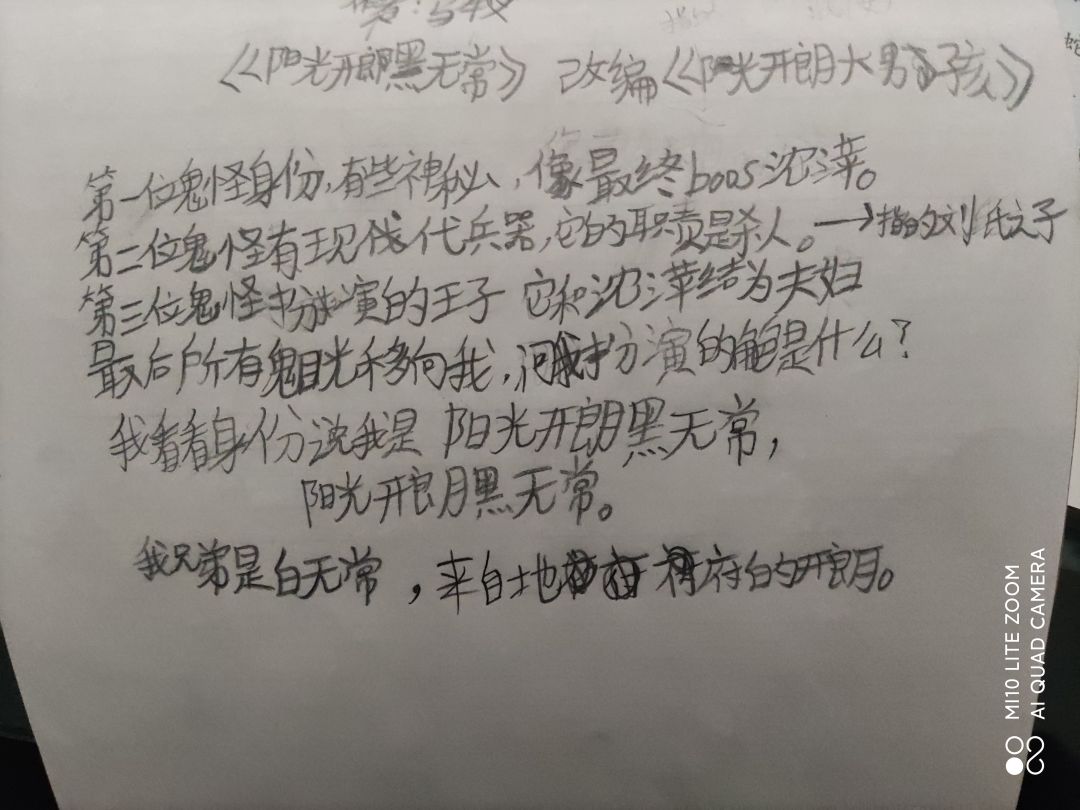 《阳光开朗黑无常》 改编《阳光开朗大男孩》
第一位鬼怪身份,有些神秘,像最终boos沈湙。
第二位鬼怪有现代兵器,它的职责是杀人。→指的刘氏之子
第三位鬼怪扮演的王子 它和沈湙结为夫妇
最后所有鬼目光移向我,问我扮演的角是什么?
我看看身份说我是 阳光开朗黑无常,
阳光开朗黑无常。
我兄弟是白无常,来自地府的开朗。
MI10 LITE ZOOM
AI QUAD CAMERA